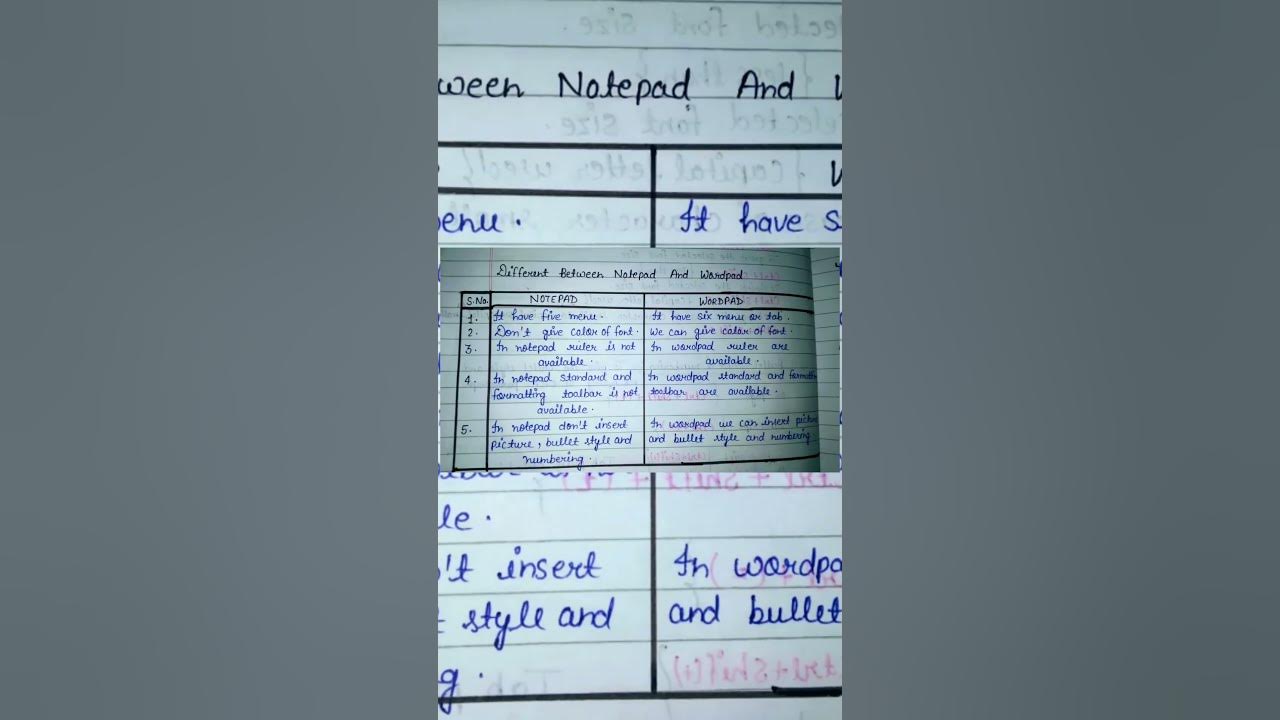 ween Notepad And
enu.
It have s
Different Between Notepad And Wordpad
S.No. NOTEPAD WORDPAD
1. It have five menu. It have six menu or tab.
2. Don't give color of font. We can give color of font.
3. In notepad ruler is not In wordpad ruler are
available. available.
4. In notepad standard and In wordpad standard and formatting
formatting toolbar is not toolbar are available.
available.
5. In notepad don't insert In wordpad we can insert picture
picture, bullet style and and bullet style and numbering.
numbering.
le.
't insert In wordpa
style and and bullet
g.